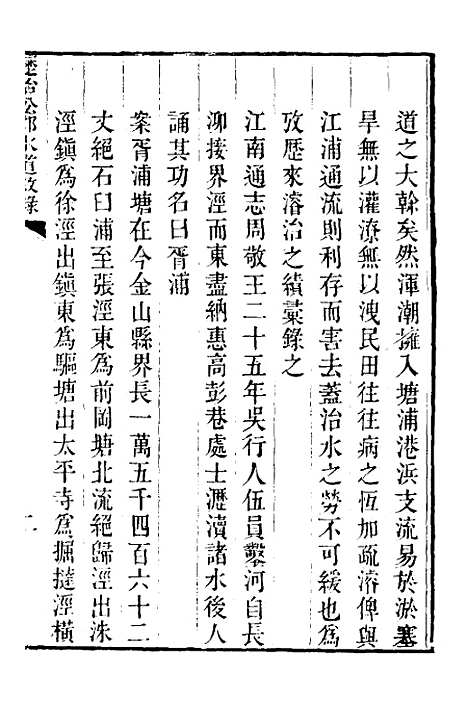 道之大幹矣然渾潮擁入塘浦港浜支流易於淤塞
旱無以灌潦無以洩民田往往病之恆加疏濬俾與
江浦通流則利存而害去蓋治水之勞不可緩也爲
攷歷來濬治之績彚錄之
江南通志周敬王二十五年吳行人伍員鑿河自長
泖接界涇而東盡納惠高彭巷處士瀝瀆諸水後人
誦其功名曰胥浦
案胥浦塘在今金山縣界長一萬五千四百六十二
丈絕石臼浦至張涇東爲前岡塘北流絕歸涇出洙
涇鎭爲徐涇出鎭東爲驅塘出太平寺爲掘撻涇橫
歷治松郡水道攷錄
二